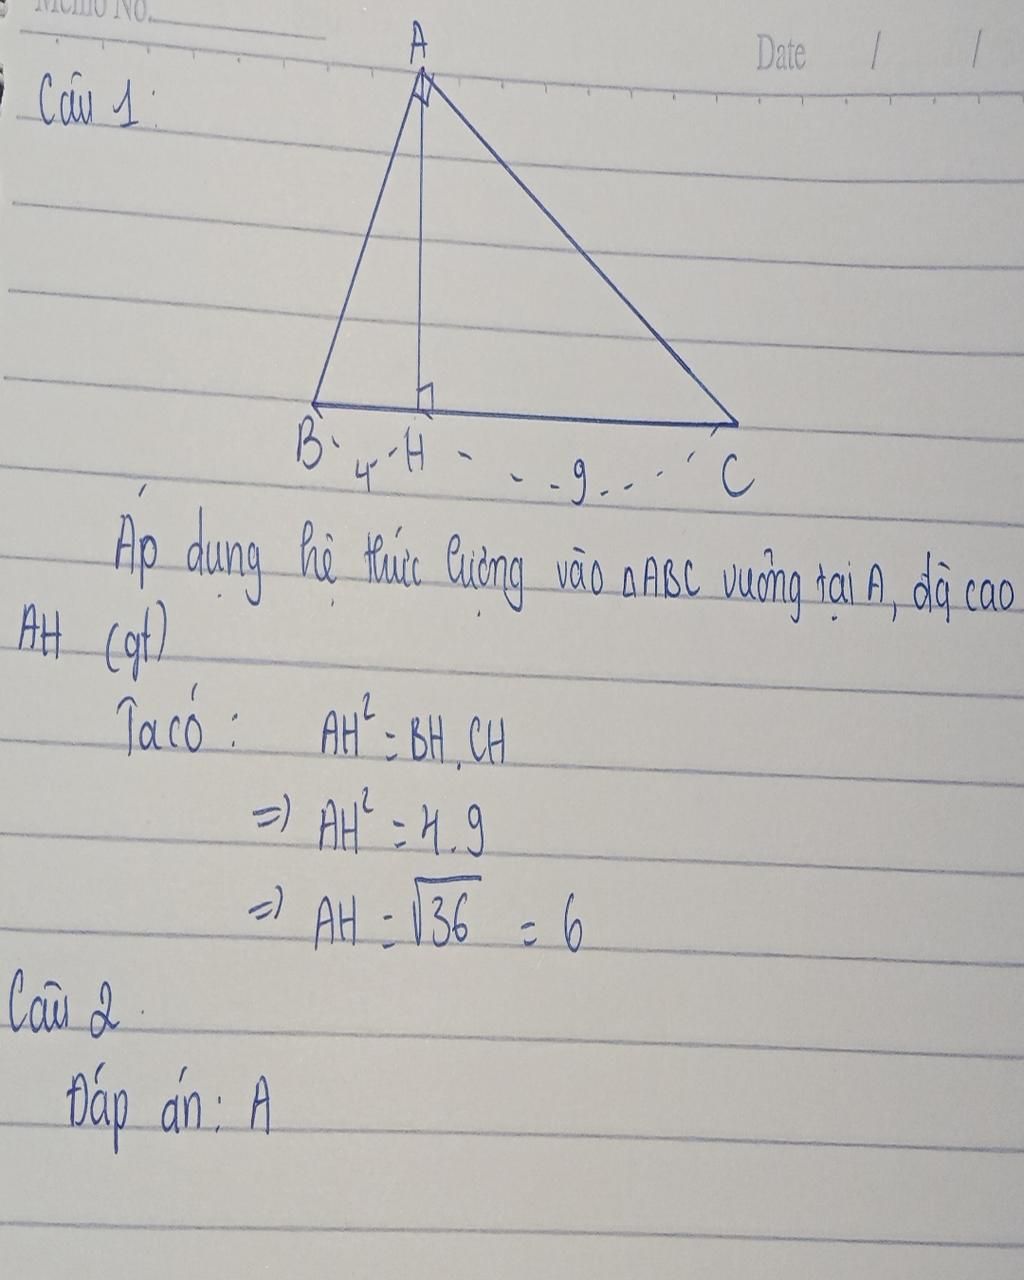 Memo No.
Date / /
Câu 1:
A
B 4 H 9 C
Áp dụng hệ thức lượng vào △ABC vuông tại A, độ cao
AH (gt)
Ta có: AH² = BH.CH
=) AH² = 4.9
=) AH = √36 = 6
Câu 2.
Đáp án: A